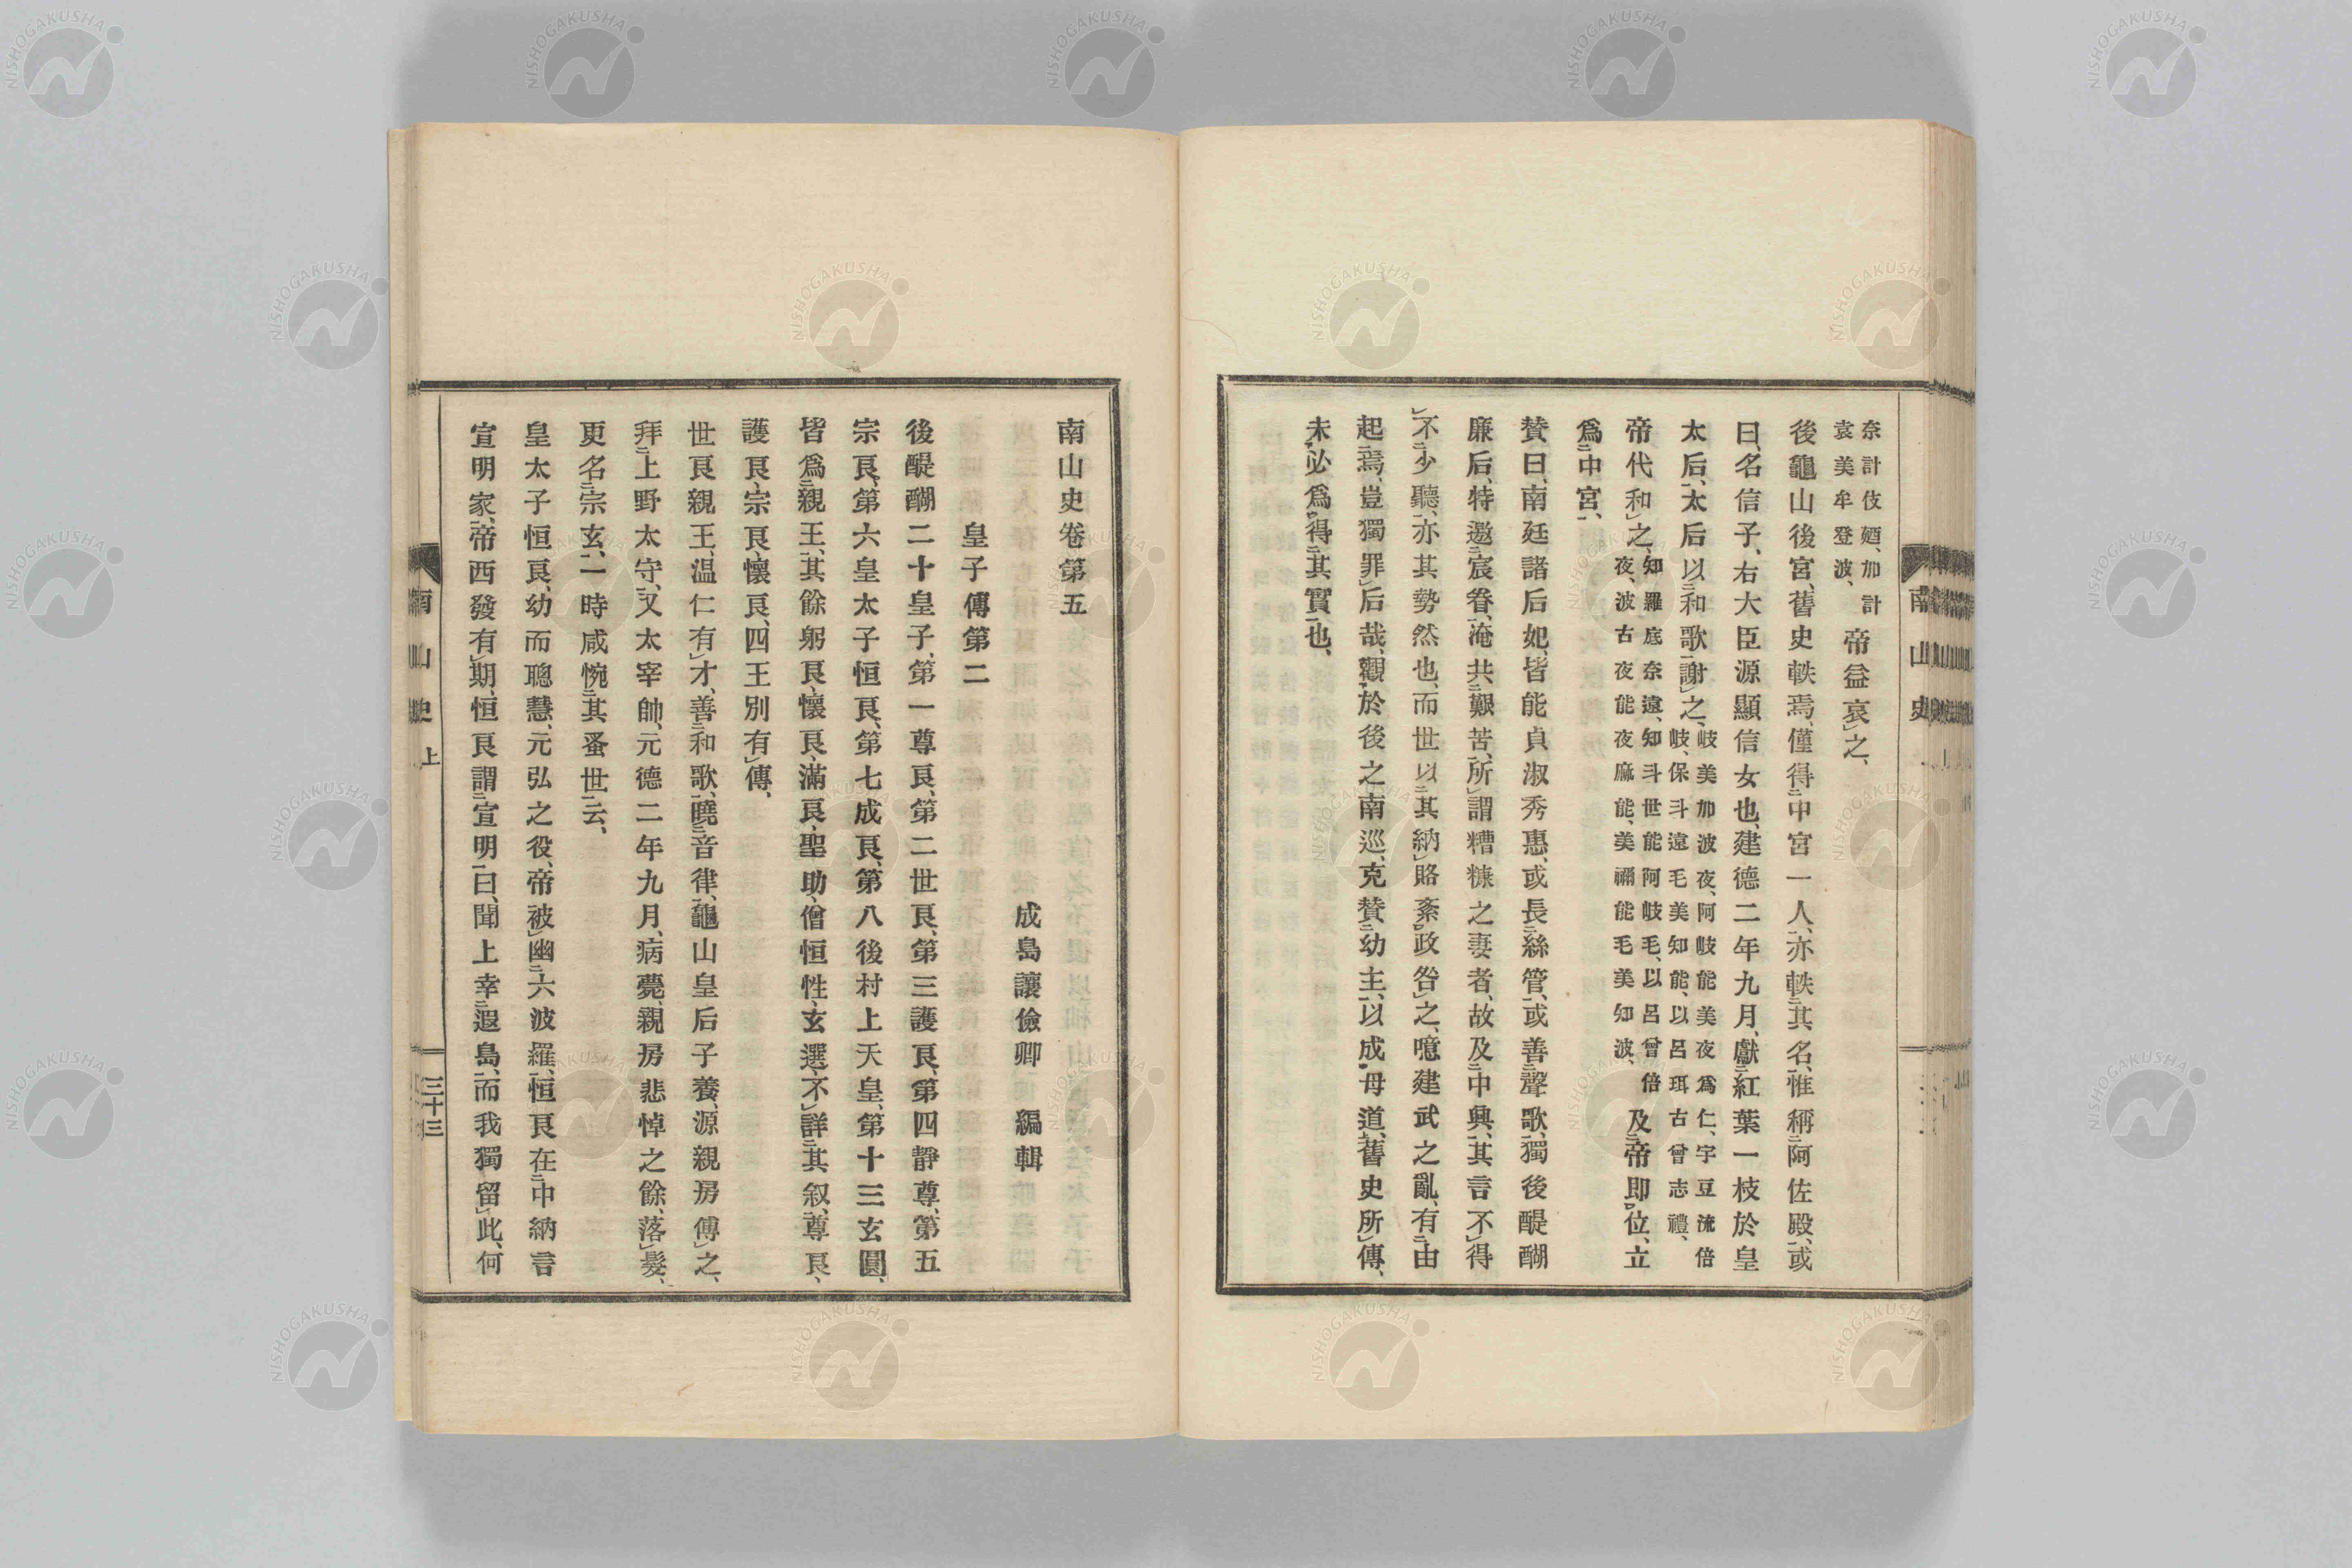 奈計伎廼、加計
袁美牟登波、
帝益哀レ之、
後龜山後宮、舊史軼焉、僅得二中宮一人一、亦軼二其名一、惟稱二阿佐殿一、或
曰、名信子、右大臣源顯信女也、建德二年九月、獻二紅葉一枝於皇
太后一、太后以二和歌一謝レ之、
岐美加波夜、阿岐能美夜爲仁、宇豆流倍
岐、保斗遠毛美知能、以呂珥古曾志禮、
帝代和レ之、
知羅底奈遠、知斗世能阿岐毛、以呂曾倍
夜、波古夜能夜麻能、美禰能毛美知波、
及二帝即一レ位、立
爲二中宮一、
賛曰、南廷諸后妃、皆能貞淑秀惠、或長二絲管一、或善二聲歌一、獨後醍醐
廉后、特邀二宸眷一、淹共二艱苦一、所レ謂糟糠之妻者、故及二中興一、其言不レ得
レ不二少聽一、亦其勢然也、而世以二其納一レ賂紊一レ政咎レ之、噫建武之亂、有二由
起一焉、豈獨罪レ后哉、觀下於後之南巡、克賛二幼主一、以成中母道上、舊史所レ傳、
未三必爲二得二其實一也、
南山史
南山史卷第五
成島讓儉卿　編輯
皇子傳第二
後醍醐二十皇子、第一尊良、第二世良、第三護良、第四靜尊、第五
宗良、第六皇太子恒良、第七成良、第八後村上天皇、第十三玄圓、
皆爲二親王一、其餘躬良、懷良、滿良、聖助、僧恒性、玄選、不レ詳二其叙一、尊良、
護良、宗良、懷良、四王別有レ傳、
世良親王、温仁有レ才、善二和歌一、曉二音律一、龜山皇后子養、源親房傅レ之、
拜二上野太守一、又太宰帥、元德二年九月、病薨、親房悲悼之餘、落レ髮、
更名二宗玄一、一時咸惋二其蚤世一云、
皇太子恒良、幼而聰慧、元弘之役、帝被レ幽二六波羅一、恒良在二中納言
宣明家一、帝西發有レ期、恒良謂二宣明一曰、聞上幸二遐島一、而我獨留レ此、何
南山史 上
三十三